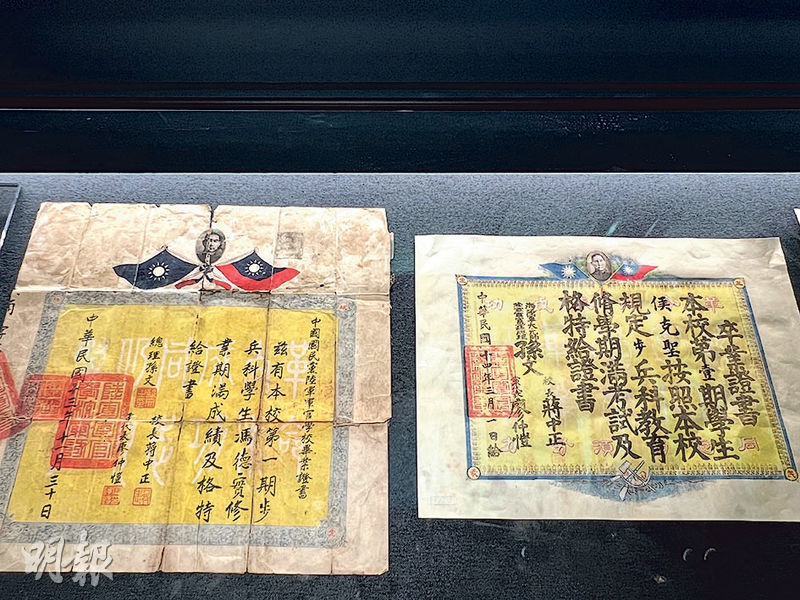 中國國民黨陸軍軍官學校畢業證書
茲有本校第一期步
兵科學生馮德實修
業期滿成績及格特
給證書
總理孫文
校長蔣中正
黨代表廖仲愷
中華民國十三年十一月三十日
卒業證書
本校第壹期學生
侯克聖按照本校
規定步兵科教育
修學期滿考試及
格特給證書
孫文
校長蔣中正
廖仲愷
中華民國十四年
月一日給
明報